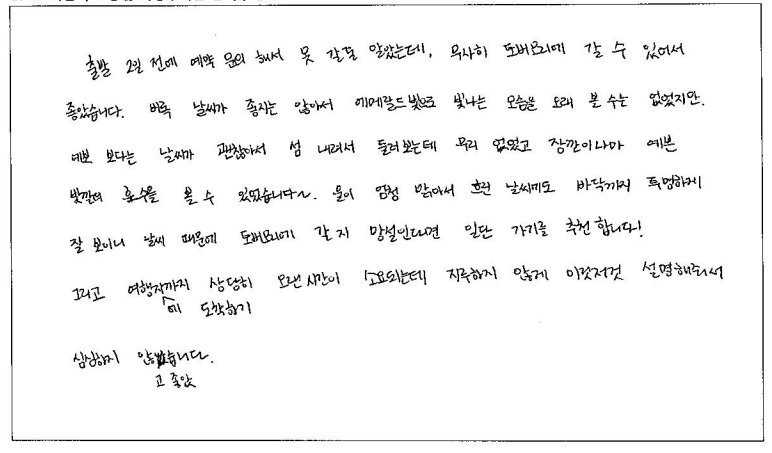 출발 2일 전에 예약 문의 해서 못 갈줄 알았는데, 무사히 토버모리에 갈 수 있어서
좋았습니다. 비록 날씨가 좋지는 않아서 에메랄드빛으로 빛나는 모습을 오래 볼 수는 없었지만.
예보 보다는 날씨가 괜찮아서 섬 내려서 둘러보는데 무리 없었고 잠깐이나마 예쁜
빛깔의 호수를 볼 수 있었습니다~. 물이 엄청 맑아서 흐린 날씨에도 바닥까지 투명하게
잘 보이니 날씨 때문에 토버모리에 갈지 망설인다면 일단 가기를 추천합니다!
그리고 여행지까지 상당히 오랜시간이 소요되는데 지루하지 않게 이것저것 설명해주셔서
에 도착하기
심심하지 않습니다.
고 좋았